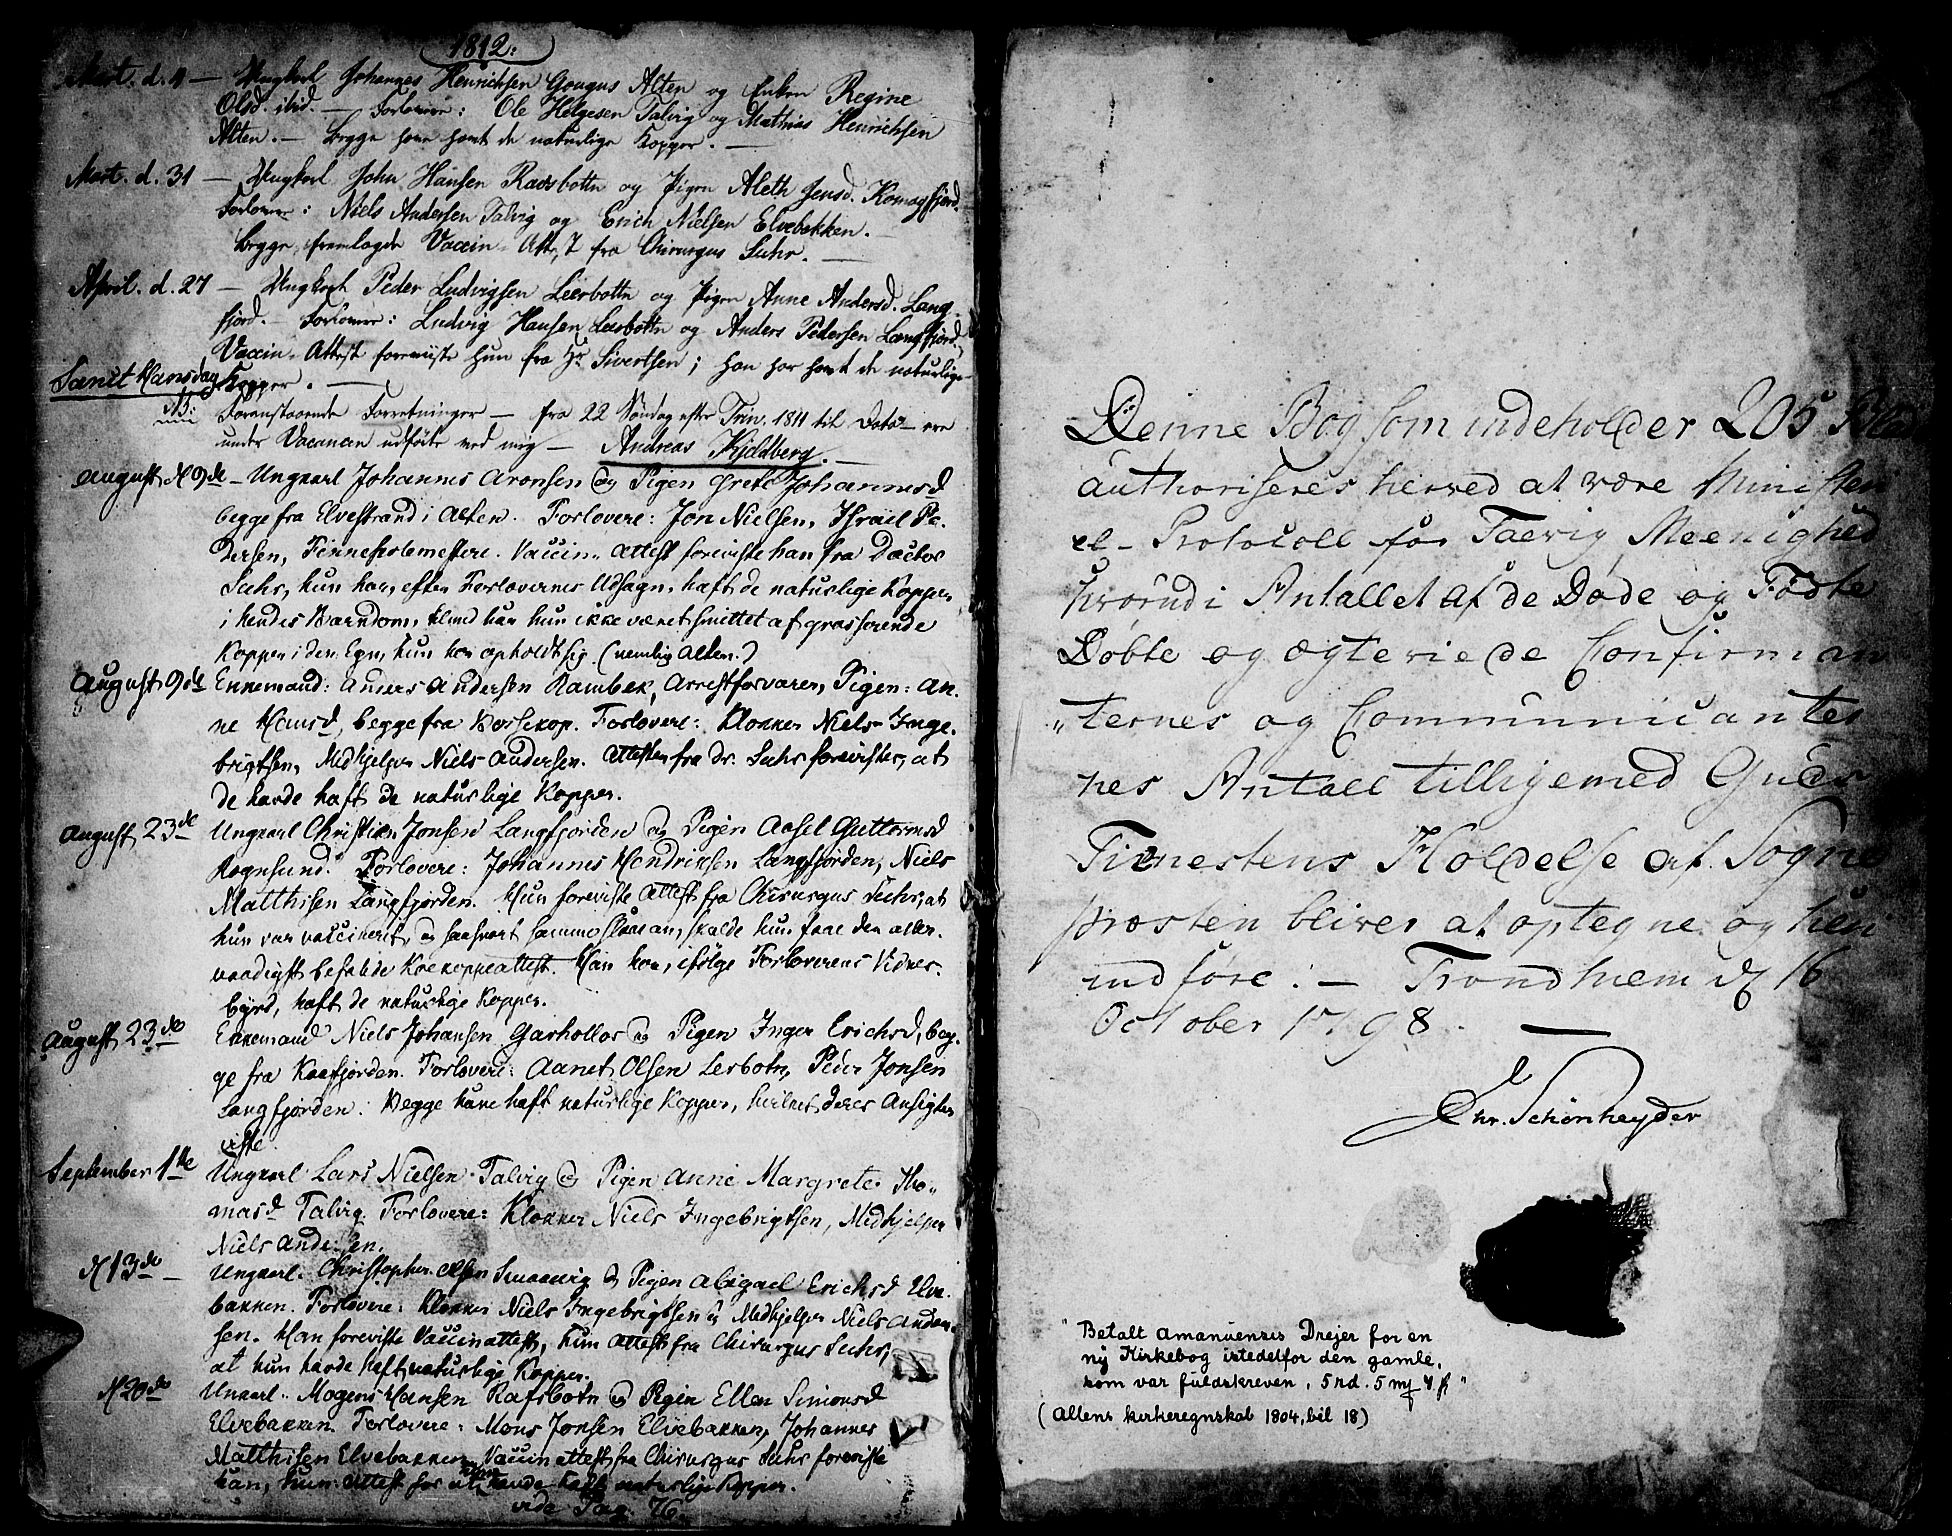 1812:
Mart. d. 4 — Ungkarl Johannes Henrichsen Gougus Alten og Enken Regine
Olsd. ibid. — Forlovere: Ole Helgesen Talvig og Mathias Henrichsen
Alten. — Begge have havt de naturlige Kopper. —
Mart. d. 31 — Ungkarl John Hansen Ravsbottn og Pigen Aleth Jensd. Komagfjord.
Forlovere: Niels Andersen Talvig og Erich Nielsen Elvebakken. —
Begge fremlagde Vaccin-Att. fra Chirurgus Suhr. —
April. d. 27 — Ungkarl Peder Ludvigsen Leerbottn og Pigen Anne Andersd. Lang-
fjord. — Forlovere: Ludvig Hansen Leerbottn og Anders Pedersen Langfjord.
Vaccin-Attest foreviiste hun fra Hr Sivertsen; han har havt de naturlige
Sanct Hansdag Kopper. —
NB: Foranstaaende Forretninger — fra 22 Søndag efter Trin. 1811 til Dato — ere
under Vacancen udførte ved mig — Andreas Kjeldberg. —
August d 9de — Ungkarl Johannes Aronsen og Pigen Grete Johannesd
begge fra Elvestrand i Alten. Forlovere: Jon Nielsen, Israel Pe-
dersen, Finneskolemestere. Vaccin-Attest foreviste han fra Doctor
Suhr, hun har, efter Forlovernes Udsagn, haft de naturlige Kopper
i hendes Barndom, siden har hun ikke været smittet af grasserende
Kopper i den Egn, hun har opholdt sig. (nemlig Alten.)
August 9de Enkemand: Anders Andersen Rambek, Arrestforvarer, Pigen: An-
ne Hansd, begge fra Bossekop. Forlovere: Klokker Niels Inge-
brigtsen, Medhjelper Niels Andersen. Attester fra Dr. Suhr forevistes, at
de havde haft de naturlige Kopper.
August 23de Ungkarl Christian Jonsen Langfjorden og Pigen Aasel Guttormsd
Rognsund. Forlovere: Johannes Hendriksen Langfjorden, Niels
Matthisen Langfjorden. Hun foreviste Attest fra Chirurgus Suhr, at
hun var vaccineret, og saasnart samme slaae an, skulde hun faae den aller-
naadigst befalede Koekoppeattest. Han har, ifølge Forloverens Vidnes-
byrd, haft de naturlige Kopper.
August 23de Enkemand Niels Johansen Garhollos og Pigen Inger Erichsd, beg-
ge fra Kaafjorden. Forlovere: Aanet Olsen Lerbotn, Peder Jonsen
Langfjorden. Begge have haft naturlige Kopper, hvilket deres Ansigter
viste.
September 1ste Ungkarl Lars Nielsen Talvig og Pigen Anne Margrete Tho-
masd Talvig. Forlovere: Klokker Niels Ingebrigtsen, Medhjelper
Niels Andersen.
d 13de — Ungkarl. Christopher Olsen Smaavig og Pigen Abigael Erichsd Elve-
bakken. Forlovere: Klokker Niels Ingebrigtsen og Medhjelper Niels Ander-
sen. Han foreviste Vaccinattest, hun Attest fra Chirurgus Suhr,
at hun havde haft naturlige Kopper.
d 20de Ungkarl. Mogens Hansen Rafsbotn og Pigen Ellen Simonsd
Elvebakken. Forlovere: Mons Jonsen Elvebakken, Johannes
Matthisen Elvebakken. Vaccinattest fra Chirurgus Suhr foreviste
han, hun Attest for at hun havde haft naturlige Kopper.
vide Pag. 76.
Denne Bog som indeholder 205 Blad
authoriseres herved at være Ministeri
el-Protocoll for Taevig Meenighed
hvorudi Antallet af de Døde og Fødte
Døbte og ægteviede Confirman
"ternes og Communicanter
nes Antall tilligemed Guds
Tienestens Holdelse af Sogne
præsten bliver at optegne og hen
indføre. — Trondhiem d 16
October 1798. —
Chr. Schønheyder
"Betalt Amanuensis Drejer for en
ny Kirkebog istedetfor den gamle,
som var fuldskreven, 5 rd. 5 mk 4 s"
(Altens kirkeregnskab 1804, bil 18)